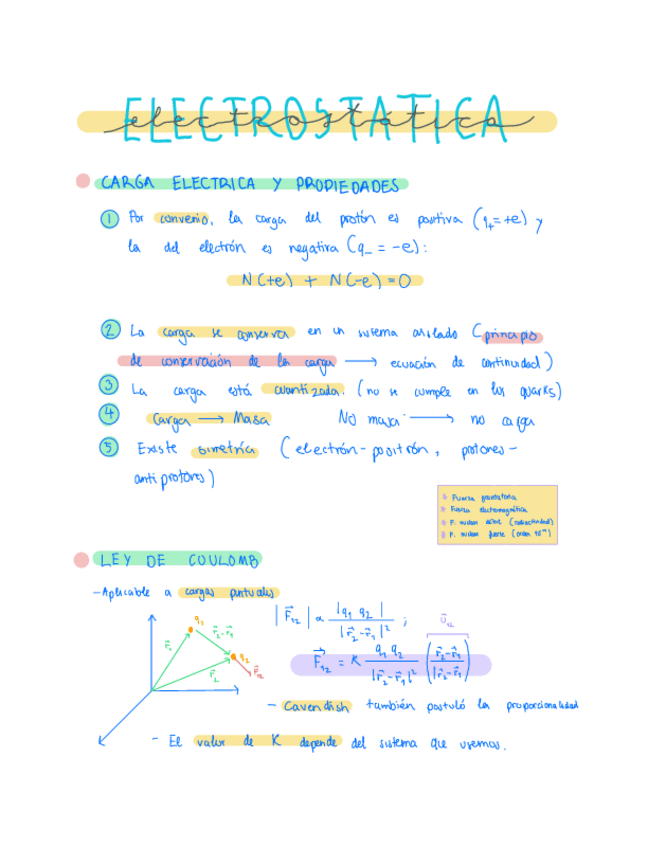 ELECTROSTATICA
electrostática
CARGA ELECTRICA Y PROPIEDADES
1 Por convenio, la carga del protón es positiva (q₊=+e) y
la del electrón es negativa (q₋ = -e):
N(+e) + N(-e) = 0
2 La carga se conserva en un sistema aislado (principio
de conservación de la carga → ecuación de continuidad)
3 La carga está cuantizada. (no se cumple en los quarks)
4 Carga → Masa No masa → no carga
5 Existe simetría (electrón-positrón, protones-
antiprotones)
Fuerza gravitatoria
Fuerza electromagnética
F. nuclear débil (radiactividad)
F. nuclear fuerte (orden
LEY DE COULOMB
- Aplicable a cargas puntuales
|F⃗₁₂| α |q₁ q₂| / |r⃗₂-r⃗₁|² ;
û₁₂
F⃗₁₂ = K q₁ q₂ / |r⃗₂-r⃗₁|² (r⃗₂-r⃗₁ / |r⃗₂-r⃗₁|)
q₁
r⃗₂-r⃗₁
q₂
F⃗₁₂
r⃗₂
- Cavendish también postuló la proporcionalidad
- El valor de K depende del sistema que usemos.